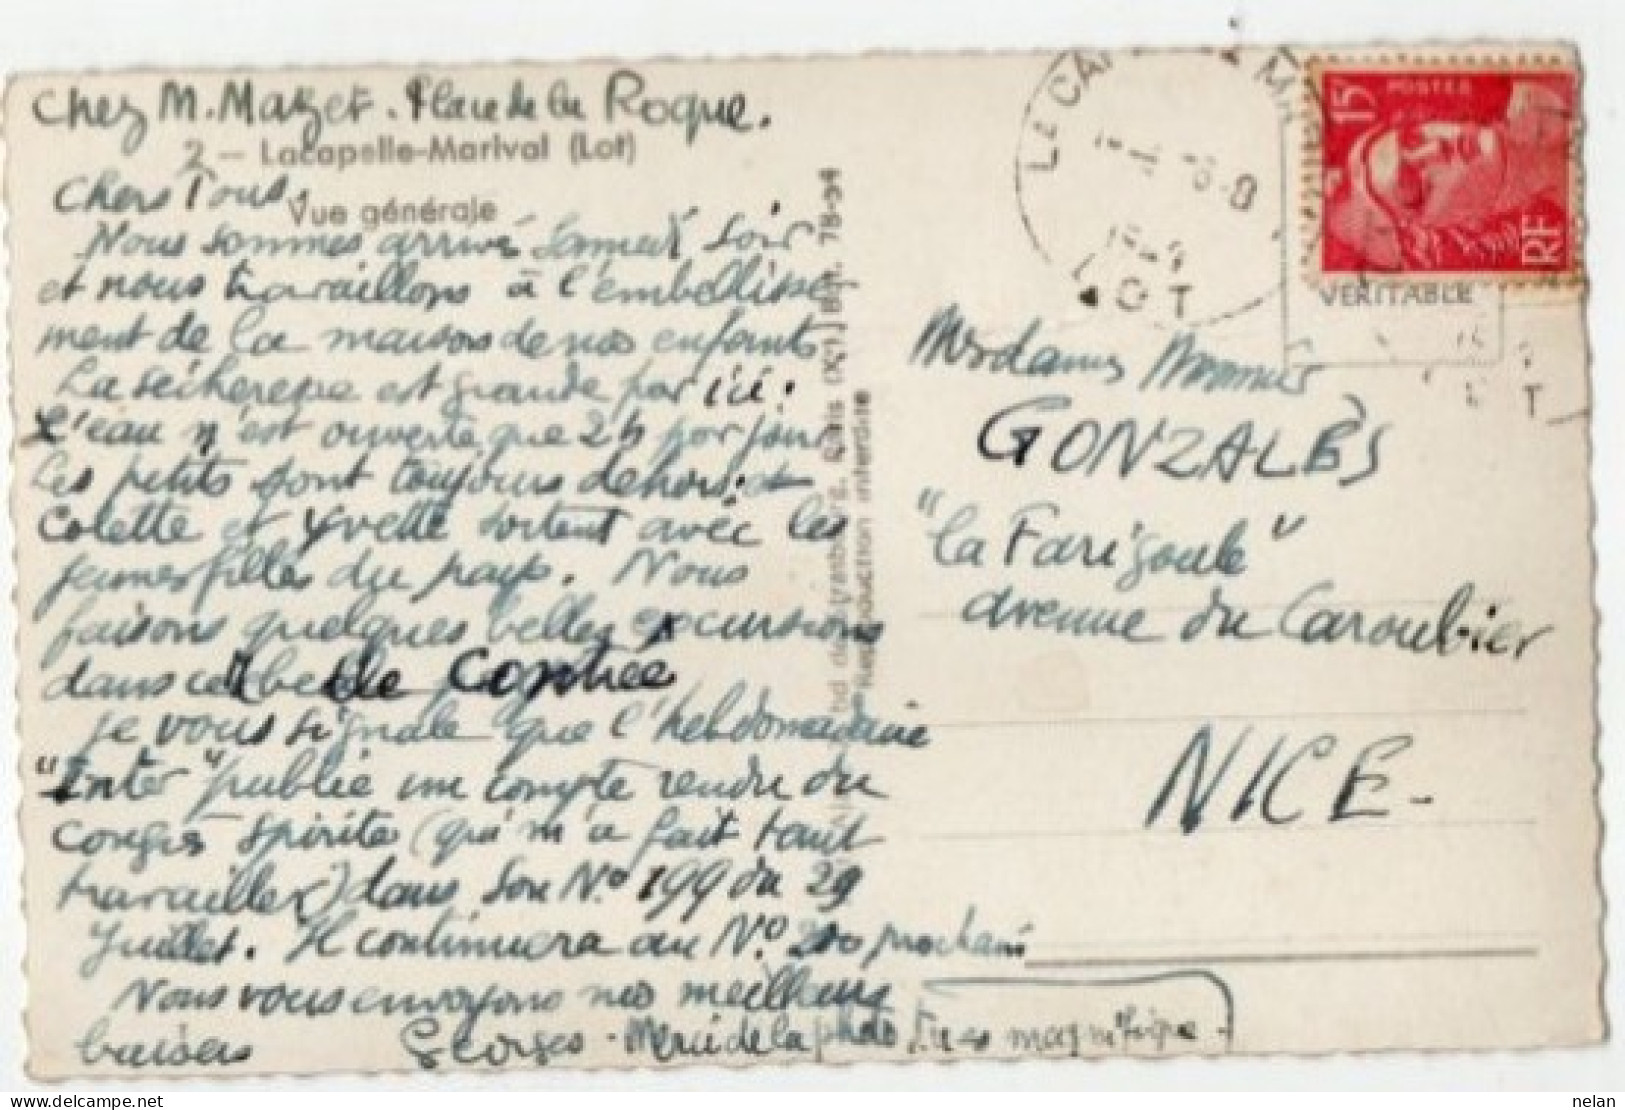 Chez M. Mazet. Place de la Roque.
2 - Lacapelle-Marival (Lot)
Vue générale
Chers Tous,
Nous sommes arrivé Samedi Soir
et nous travaillons à l'embellisse
ment de la maison de nos enfants
La sécheresse est grande par ici.
L'eau n'est ouverte que 2h par jour
Les petits sont toujours dehors et
Colette et Yvette sortent avec les
jeunes filles du pays. Nous
faisons quelques belles excursions
dans
je vous signale que l'hebdomadaire
"Inter" publie un compte rendu du
Congrès Spirite (qui m'a fait tant
travailler) dans son N.º 199 du 29
Juillet. Il continuera au N.º 200 prochain
Nous vous envoyons nos meilleurs
baisers Georges - Merci de la photo magnifique -
78-54
Reproduction interdite
LOT
POSTES
15F
RF
VERITABLE
Madame Monnier
GONZALÈS
"La Farigoule"
Avenue du Caroubier
NICE -
nelan
delcampe.net